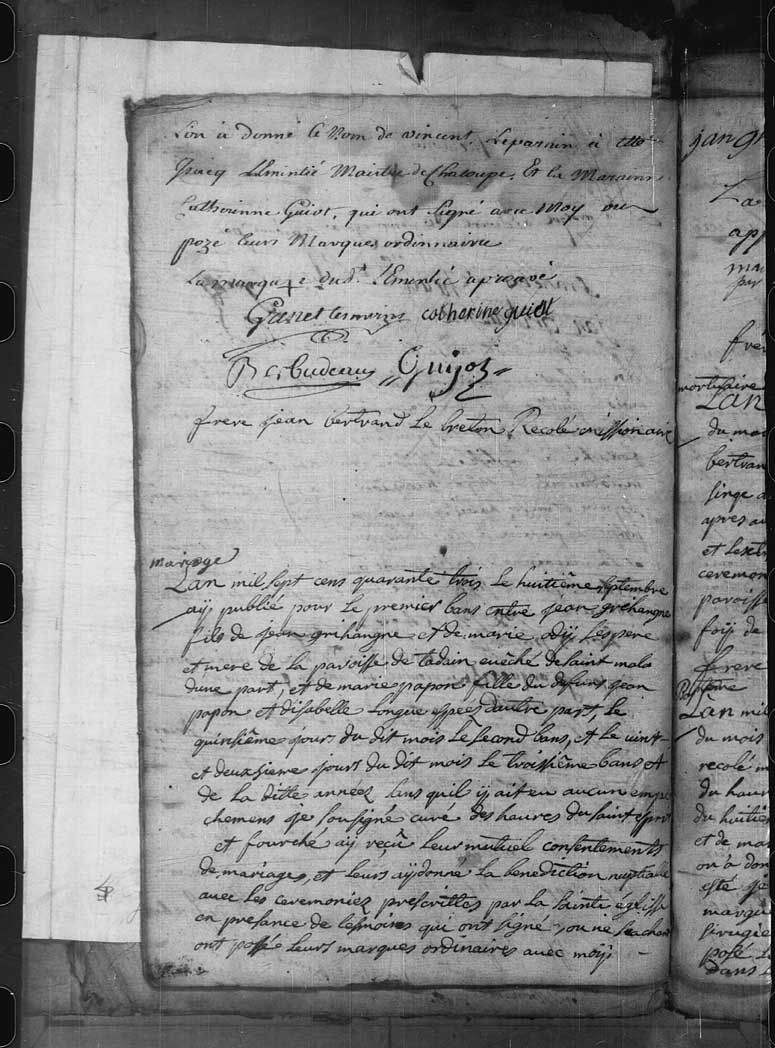 Lon a donné le Nom de vincent. Le parrin a etté
Jacq LEmintié Maistre de Chaloupe. Et la Maraine
Catherinne Guiot, qui ont signé avec Moy ou
pozé leurs Marques ordinnairre
La marque dud. LEmintié aprouvé
Ganet tesmoins catherine guiot
Barbudeaux Guijot
frere jean bertrand Le breton Recolé missionaire
mariage
Lan mil sept cens quarante trois Le huitiême septembre
aÿ publié pour Le premier bans entre jean grihangne
fils de jean grihangne et de marie odÿ Ses pere
et mere de La paroisse de tadain evêché de saint malo
dune part, et de marie papon fille du defunt jean
papon et disabelle Longue espee dautre part, Le
quinsiême jour du dit mois Le second bans, et Le vint
et deuxsieme jours du dit mois Le troissiême bans et
de La ditte année sans quil ÿ ait eu aucun empe
chemens je sousigné curé des haures du saint esprit
et fourché aÿ reçû Leur mutuel consentements
de mariage, et Leurs aÿ donné La benediction nuptialle
avec Les ceremoniez prescrittes par La sainte eglisse
en presance de tesmoins qui ont signé ou ne sachant
ont possé Leurs marques ordinaires avec moÿ
jan
La
app
par
frere
mortuaire
LAN
du moi
bertran
singe
apres a
et Lext
ceremon
paroisse
foÿ de
frere
Baptême
LAN mil
du mois
recolé m
du haur
du huitie
et de mar
on a don
esté je
marque
posé L
dans L